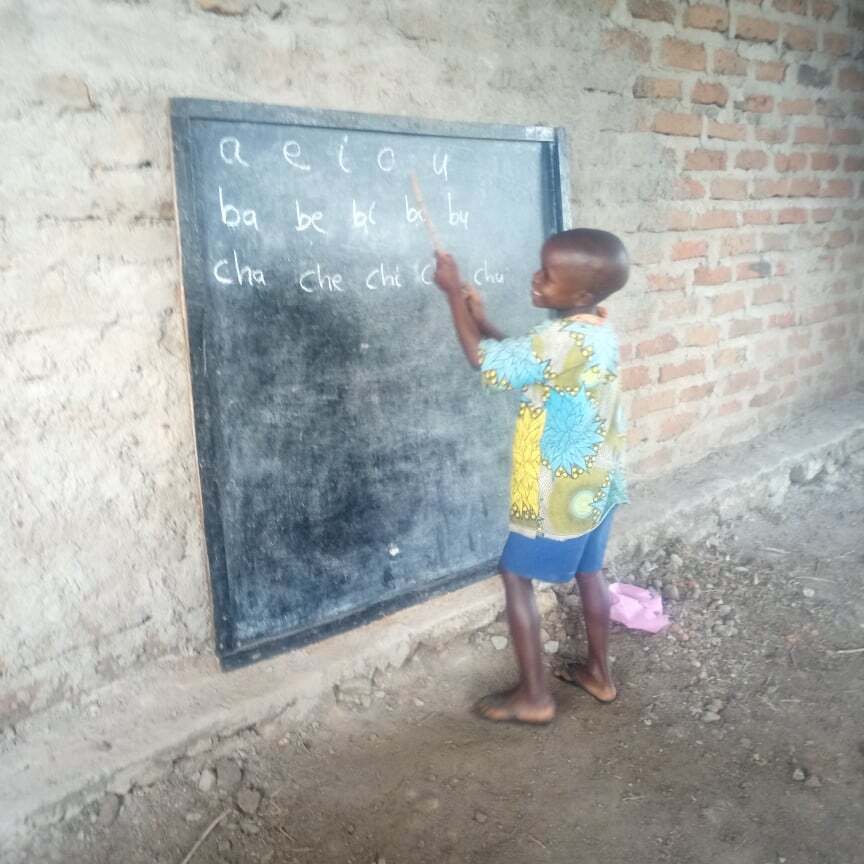 a e i o u
ba be bi bo bu
cha che chi chu